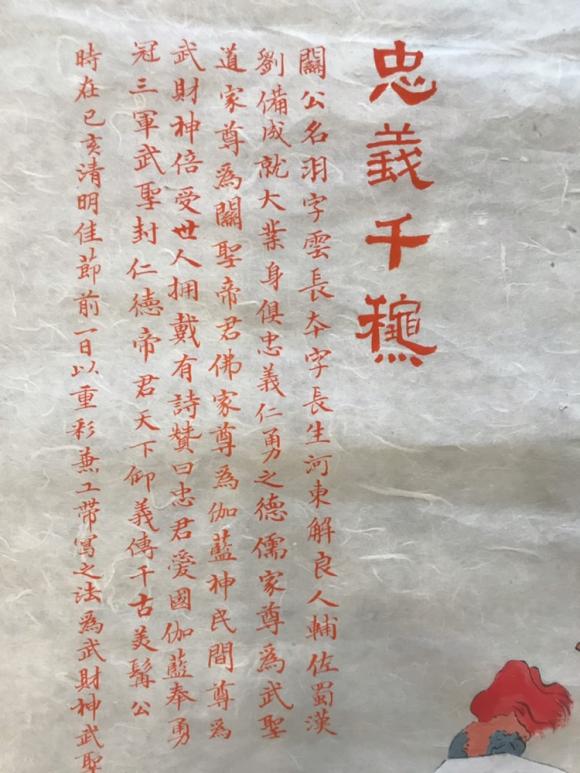 忠義千龝
關公名羽字雲長本字長生河東解良人輔佐蜀漢
劉備成就大業身俱忠義仁勇之德儒家尊為武聖
道家尊為關聖帝君佛家尊為伽藍神民間尊為
武財神倍受世人拥戴有詩贊曰忠君愛國伽藍奉勇
冠三軍武聖封仁德帝君天下仰義傳千古美髯公
時在己亥清明佳節前一日以重彩兼工带寫之法為武財神武聖